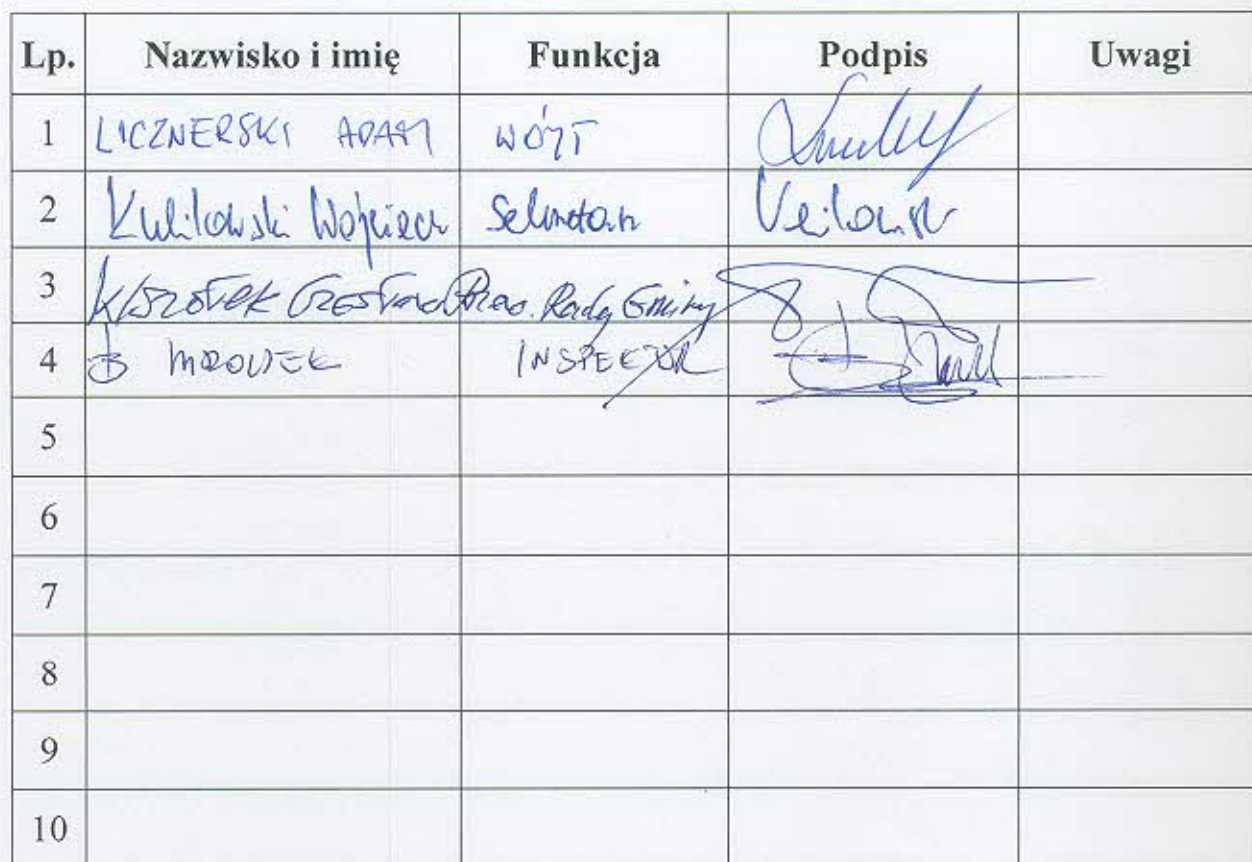 Lp. Nazwisko i imię Funkcja Podpis Uwagi
1 LICZNERSKI ADAM WÓJT
2 Kulikowski Wojciech Sekretarz
3 Rady Gminy
4 MROWIEC INSPEKTOR
5
6
7
8
9
10